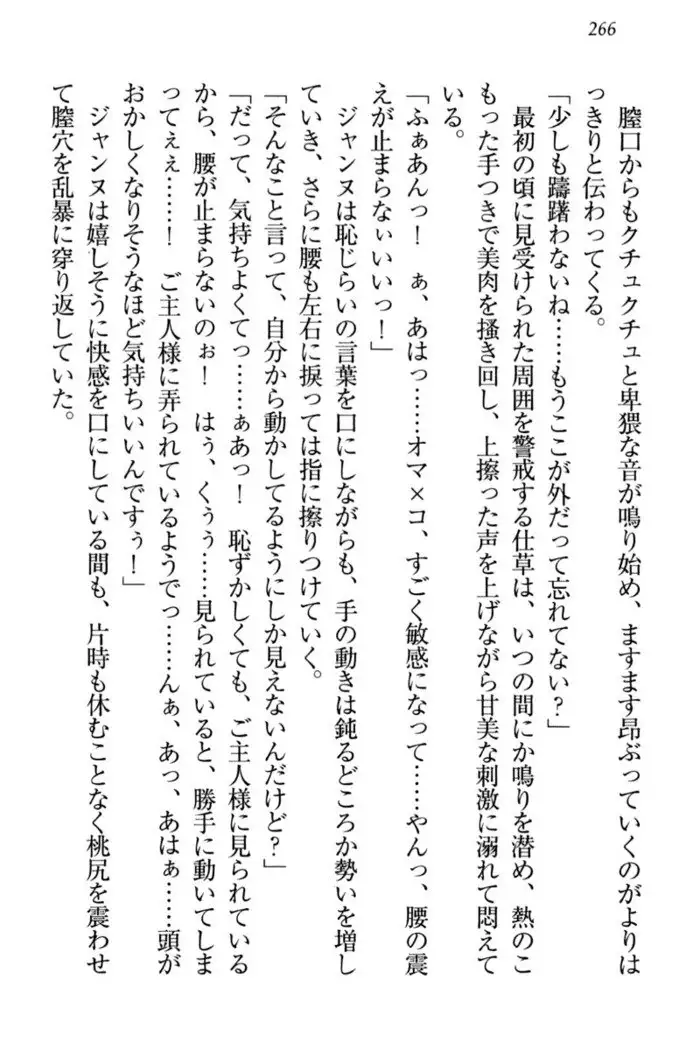 266
膣口からもクチュクチュと卑猥な音が鳴り始め、ますます昂ぶっていくのがよりは
っきりと伝わってくる。
「少しも躊躇わないね……もうここが外だって忘れてない？」
最初の頃に見受けられた周囲を警戒する仕草は、いつの間にか鳴りを潜め、熱のこ
もった手つきで美肉を掻き回し、上擦った声を上げながら甘美な刺激に溺れて悶えて
いる。
「ふぁあんっ！　ぁ、あはっ……オマ×コ、すごく敏感になって……やんっ、腰の震
えが止まらなぃいいっ！」
ジャンヌは恥じらいの言葉を口にしながらも、手の動きは鈍るどころか勢いを増し
ていき、さらに腰も左右に捩っては指に擦りつけていく。
「そんなこと言って、自分から動かしてるようにしか見えないんだけど？」
「だって、気持ちよくてっ……ぁあっ！　恥ずかしくても、ご主人様に見られている
から、腰が止まらないのぉ！　はぅ、くぅぅ……見られていると、勝手に動いてしま
ってぇぇ……！　ご主人様に弄られているようでっ……んぁ、あっ、あはぁ……頭が
おかしくなりそうなほど気持ちいいんですぅ！」
ジャンヌは嬉しそうに快感を口にしている間も、片時も休むことなく桃尻を震わせ
て膣穴を乱暴に穿り返していた。